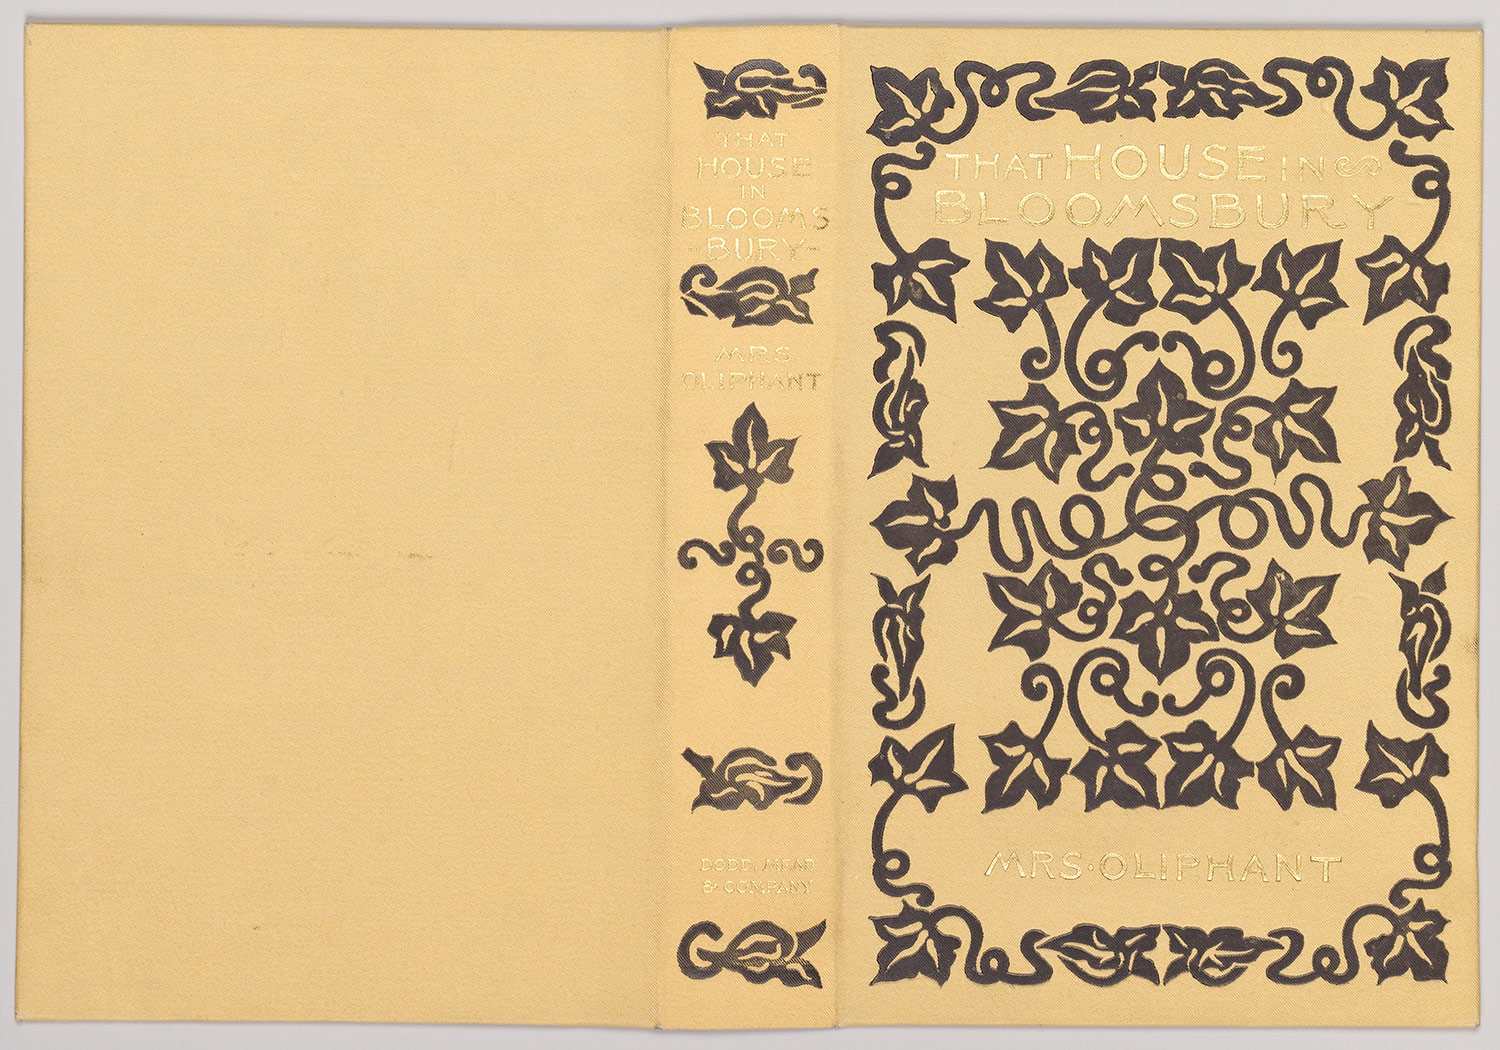 THAT
HOUSE
IN
BLOOMS
-BURY-
MRS.
OLIPHANT
DODD, MEAD
& COMPANY
THAT HOUSE IN
BLOOMSBURY
MRS·OLIPHANT